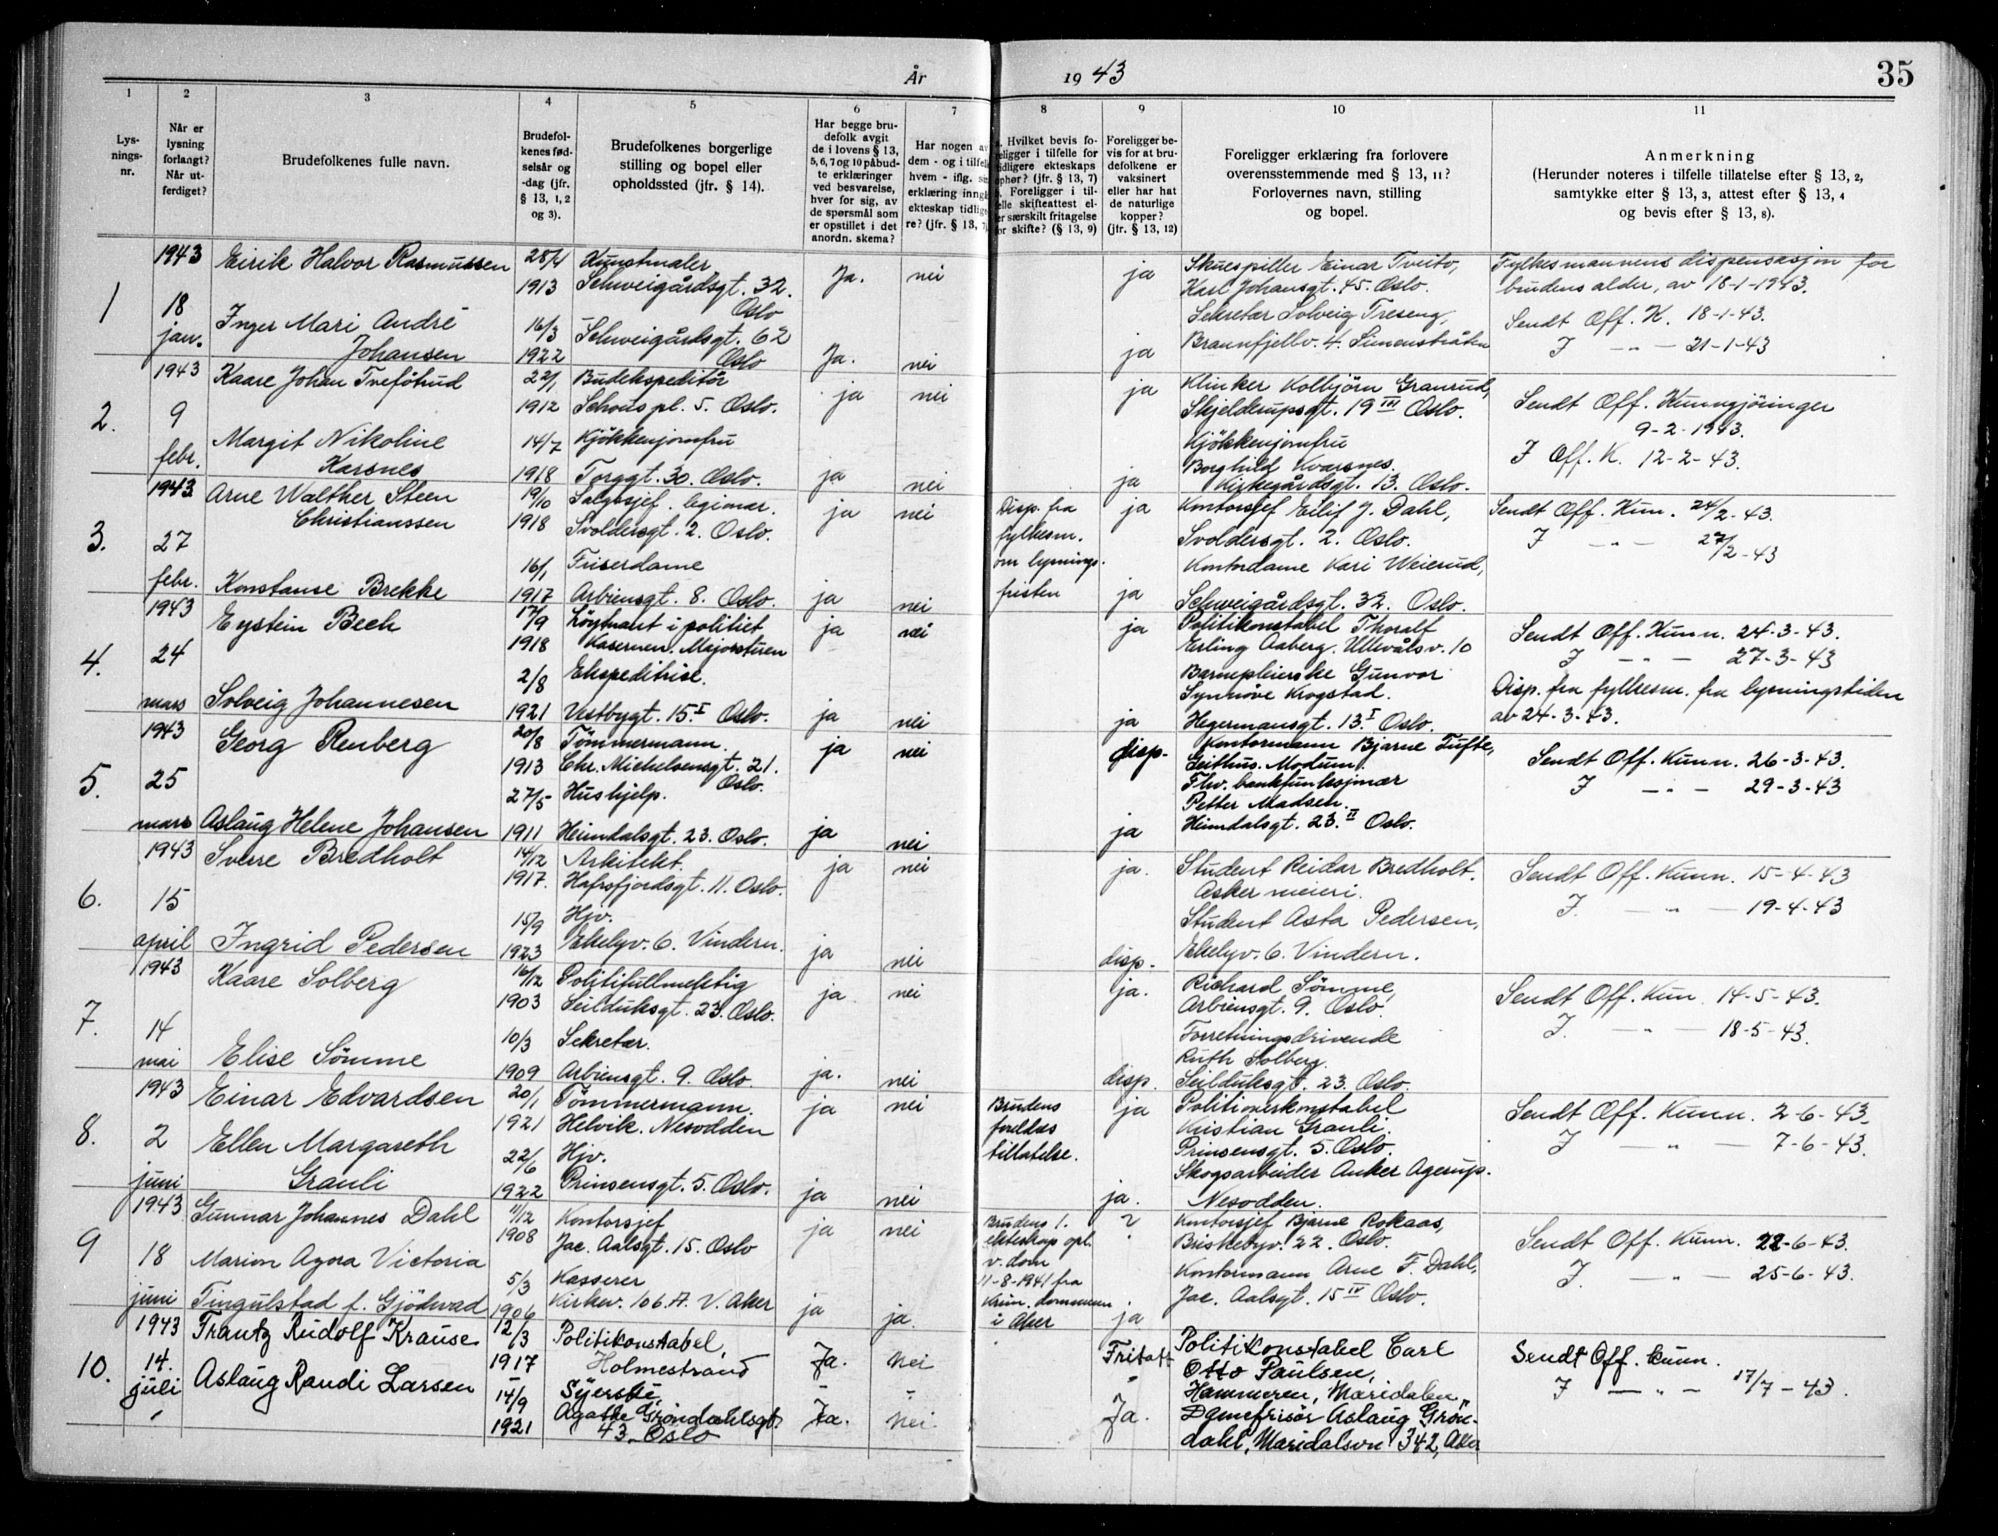 År 1943
35
1 2 3 4 5 6 7 8 9 10 11
Lysnings-nr.
Når er lysning forlangt? Når utferdiget?
Brudefolkenes fulle navn.
Brudefolkenes fødselsår og -dag (jfr. § 13, 1, 2 og 3).
Brudefolkenes borgerlige stilling og bopel eller opholdssted (jfr. § 14).
Har begge brudefolk avgitt de i lovens § 13, 5, 6, 7 og 10 påbudte erklæringer ved besvarelse, hver for sig, av de spørsmål som er opstillet i det anordn. skema?
Har nogen av dem - og i tilfelle hvem - iflg. sin erklæring inngått ekteskap tidligere? (jfr. § 13, 7)
Hvilket bevis foreligger i tilfelle for tidligere ekteskaps ophør? (jfr. § 13, 7) Foreligger i tilfelle skifteattest eller særskilt fritagelse for skifte? (§ 13, 9)
Foreligger bevis for at brudefolkene er vaksinert eller har hatt de naturlige kopper? (jfr. § 13, 12)
Foreligger erklæring fra forlovere overensstemmende med § 13, 11? Forlovernes navn, stilling og bopel.
Anmerkning (Herunder noteres i tilfelle tillatelse efter § 13, 2, samtykke efter § 13, 3, attest efter § 13, 4 og bevis efter § 13, 8).
1 1943 18 jan.
Eirik Halvor Rasmussen 28/4 1913 Kunstmaler Schweigårdsgt. 32. Oslo Ja. nei ja
Inger Mari André Johansen 16/3 1922 Schweigårdsgt. 62 Oslo Ja. nei ja
Skuespiller Einar Tveito,
Karl Johansgt. 45. Oslo.
Sekretær Solveig Treseng,
Braunfjellv. 4. Simenstråten
Fylkesmannens dispensasjon for
brudens alder, av 18-1-1943.
Sendt Off. K. 18-1-43.
I — " — 21-1-43
2. 1943 9 febr.
Kaare Johan Tveføtud 22/1 1912 Budekspeditør Schous pl. 5. Oslo. ja nei ja
Margit Nikoline Karsnes 14/7 1918 Kjøkkenjomfru Torggt. 30. Oslo. ja nei ja
Klinker Kolbjørn Granrud,
Skjelderupsgt. 19 III Oslo.
Kjøkkenjomfru
Borghild Kvarsnes.
Kirkegårdsgt. 13. Oslo.
Sendt Off. Kunngjøringer
9-2-1943.
I Off. K. 12-2-43.
3. 1943 27 febr.
Arne Walther Steen Christianssen 19/10 1918 Salgssjef. legionær. Svoldersgt. 2. Oslo. ja nei ja
Konstanse Brekke 16/1 1917 Friserdame Arbiensgt. 8. Oslo. ja nei ja
Disp. fra
fylkesm.
om lysnings-
fristen
Kontorsjef Eilif J. Dahl,
Svoldersgt. 2. Oslo.
Kontordame Kari Weierud,
Schweigårdsgt. 32. Oslo.
Sendt Off. Kun. 24/2-43.
I — " — 27/2-43
4. 1943 24 mars
Eystein Bech 17/9 1918 Løytnant i politiet Kasernen. Majorstuen ja nei ja
Solveig Johannesen 2/8 1921 Ekspeditrise. Vestbygt. 15 I Oslo. ja nei ja
Politikonstabel Thoralf
Erling Aaberg. Ullevålsv. 10
Barnepleierske Gunvor
Synnøve Krogstad.
Hegermansgt. 13 I Oslo.
Sendt Off. Kunn. 24-3-43.
I — " — 27-3-43
Disp. fra fylkesm. fra lysningstiden
av 24-3-43.
5. 1943 25 mars
Georg Renberg 20/8 1913 Tømmermann. Chr. Michelsensgt. 21. Oslo. ja nei disp.
Aslaug Helene Johansen 27/5 1911 Hushjelp. Heimdalsgt. 23. Oslo. ja nei ja
Kontormann Bjarne Tufte,
Geithus. Modum.
Fhv. bankfunksjonær
Petter Madsen.
Heimdalsgt. 23 II Oslo.
Sendt Off. Kunn. 26-3-43.
I — " — 29-3-43
6. 1943 15 april
Sverre Bredholt 14/12 1917. Arkitekt. Hafrsfjordsgt. 11. Oslo. ja nei ja.
Ingrid Pedersen 15/9 1923 Hjv. Ekelyv. 6. Vindern. ja nei disp.
Student Reidar Bredholt.
Asker meieri.
Student Asta Pedersen,
Ekelyv. 6. Vindern.
Sendt Off. Kunn. 15-4-43
I. — " — 19-4-43
7. 1943 14 mai
Kaare Solberg 16/12 1903 Politifullmektig Seilduksgt. 23. Oslo. ja nei ja.
Elise Sömme 10/3 1909 Sekretær. Arbiensgt. 9. Oslo. ja. nei disp.
Richard Sömme,
Arbiensgt. 9. Oslo.
Forretningsdrivende
Ruth Solberg.
Seilduksgt. 23. Oslo.
Sendt Off. Kun. 14-5-43.
I. — " — 18-5-43.
8. 1943 2 juni
Einar Edvardsen 20/1 1921 Tømmermann. Helvik. Nesodden ja nei ja
Ellen Margareth Grauli 22/6 1922 Hjv. Prinsensgt. 5. Oslo. ja nei ja.
Brudens
foreldres
tillatelse.
Politioverkonstabel
Kristian Grauli.
Prinsensgt. 5. Oslo.
Skogsarbeider Anker Agerup.
Nesodden.
Sendt Off. Kunn. 2-6-43.
I — " — 7-6-43.
9 1943 18 juni
Gunnar Johannes Dahl 11/12 1908 Kontorsjef Jac. Aalsgt. 15. Oslo ja nei ?
Marion Agora Victoria Tingulstad f. Gjödwad 5/3 1906 Kasserer Kirkev. 106 A. V. Aker ja ja. ja
Brudens 1.
ekteskap opl.
v. dom
11-8-1941 fra
i Aker
Kontorsjef Bjarne Rokaas,
Briskebyv. 22. Oslo.
Kontormann Arne F. Dahl,
Jac. Aalsgt. 15 IV Oslo.
Sendt Off. Kunn. 22-6-43.
I. — " — 25-6-43.
10. 1943 14. juli
Frantz Rudolf Krause 12/3 1917 Politikonstabel, Holmestrand Ja. nei Fritatt
Aslaug Randi Larsen 14/9 1921 Syerske, Agathe Grøndahlsgt. 43, Oslo Ja. nei. Ja.
Politikonstabel Carl
Otto Paulsen,
Hammeren, Maridalen,
Damefrisør Aslaug Grön-
dahl, Maridalsvn 342, Aker
Sendt Off. kunn.
I — " — 17/7-43.